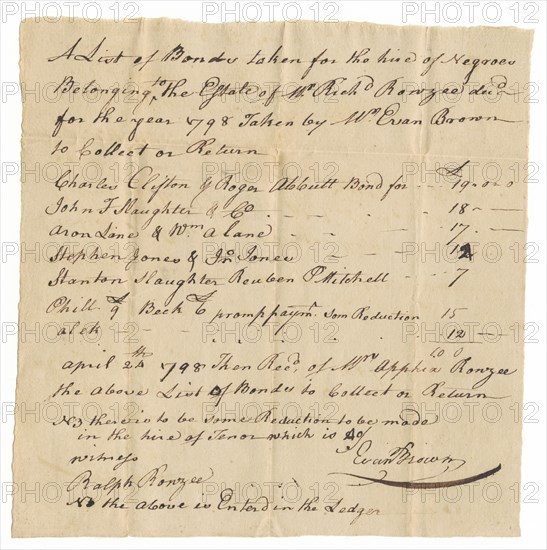 A List of Bonds taken for the hire of Negroes
Belonging to the Estate of Mr Richd Rowzee decd
for the year 1798 Taken by Mr Evan Brown
to Collect or Return
£
Charles Clifton & Roger Abbutt Bond for - - 19-0-0
John F Slaughter & Co - - - - 18 - -
Aron Lane & Wm a lane - - - - 17. - -
Stephen Jones & Jno Jones - - - 12
Stanton Slaughter Reuben P Mitchell - - 7
Phill £9 Beck £6 prompt paymt Som Reduction 15
alek . . . . . 12 - -
april 24th 1798 Then Recd of Mrs Apphia Rowzee
the above List of Bonds to Collect or Return
NB there is to be Some Reduction to be made
in the hire of Tenor which is
witness
Evan Brown
Ralph Rowzee
NB the above is Enterd in the Ledger
PHOTO12